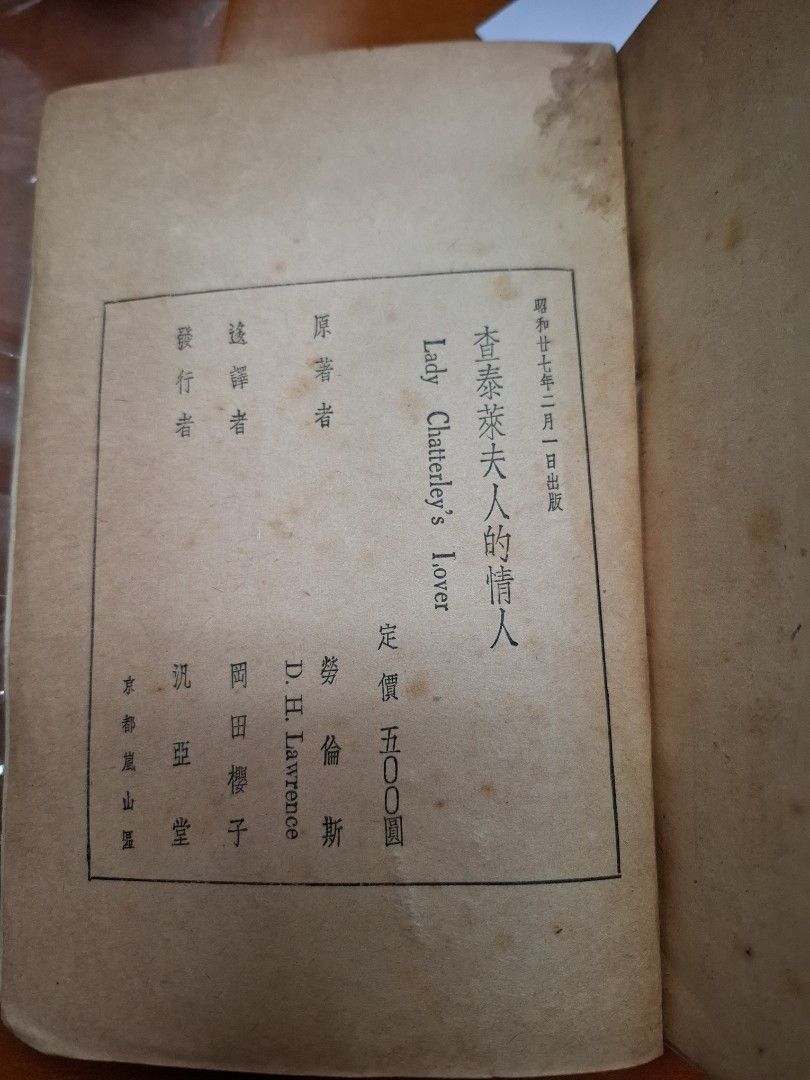 昭和廿七年二月一日出版
查泰萊夫人的情人
Lady Chatterley's Lover
定價五〇〇圓
原著者 勞倫斯
D. H. Lawrence
迻譯者 岡田櫻子
發行者 汎亞堂
京都嵐山區